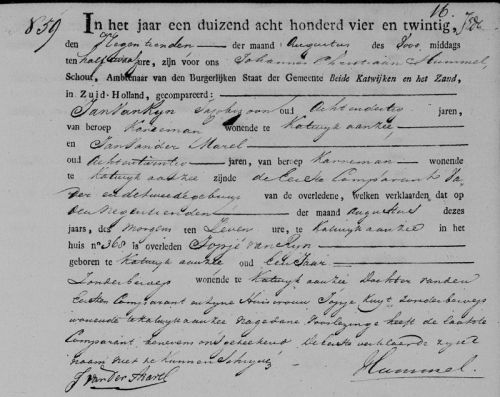 16.
859 In het jaar een duizend acht honderd vier en twintig,
den Negentienden der maand Augustus des Voor middags
ten half twaalf ure, zijn voor ons Johannes Christiaan Hummel,
Schout, Ambtenaar van den Burgerlijken Staat der Gemeente Beide Katwijken en het Zand,
in Zuid-Holland, gecompareerd:
Jan Van Ryn oud jaren,
van beroep wonende te Katwyk aan Zee,
en Jan Van der Marel
oud jaren, van beroep Karreman wonende
te Katwyk aan Zee zijnde de Eerste Comparant Va-
der en de tweede gebuur van de overledene, welken verklaarden, dat op
den Negentienden der maand Augustus dezes
jaars, des Morgens ten Zeven ure, te Katwyk aan Zee in het
huis no 368 is overleden Van Ryn
geboren te Katwyk aan Zee oud Een Jaar
Zonder beroep wonende te Katwyk aan Zee Dochter van den
Eersten Comparant en Zyne Huisvrouw Kuyt, zonder beroep
wonende te Katwyk aan Zee Na gedane Voorlezinge heeft de laatste
Comparant, benevens ons getekend De Eerste verklaarde zyn
naam niet te kunnen Schryven
J Van Der Marel Hummel.